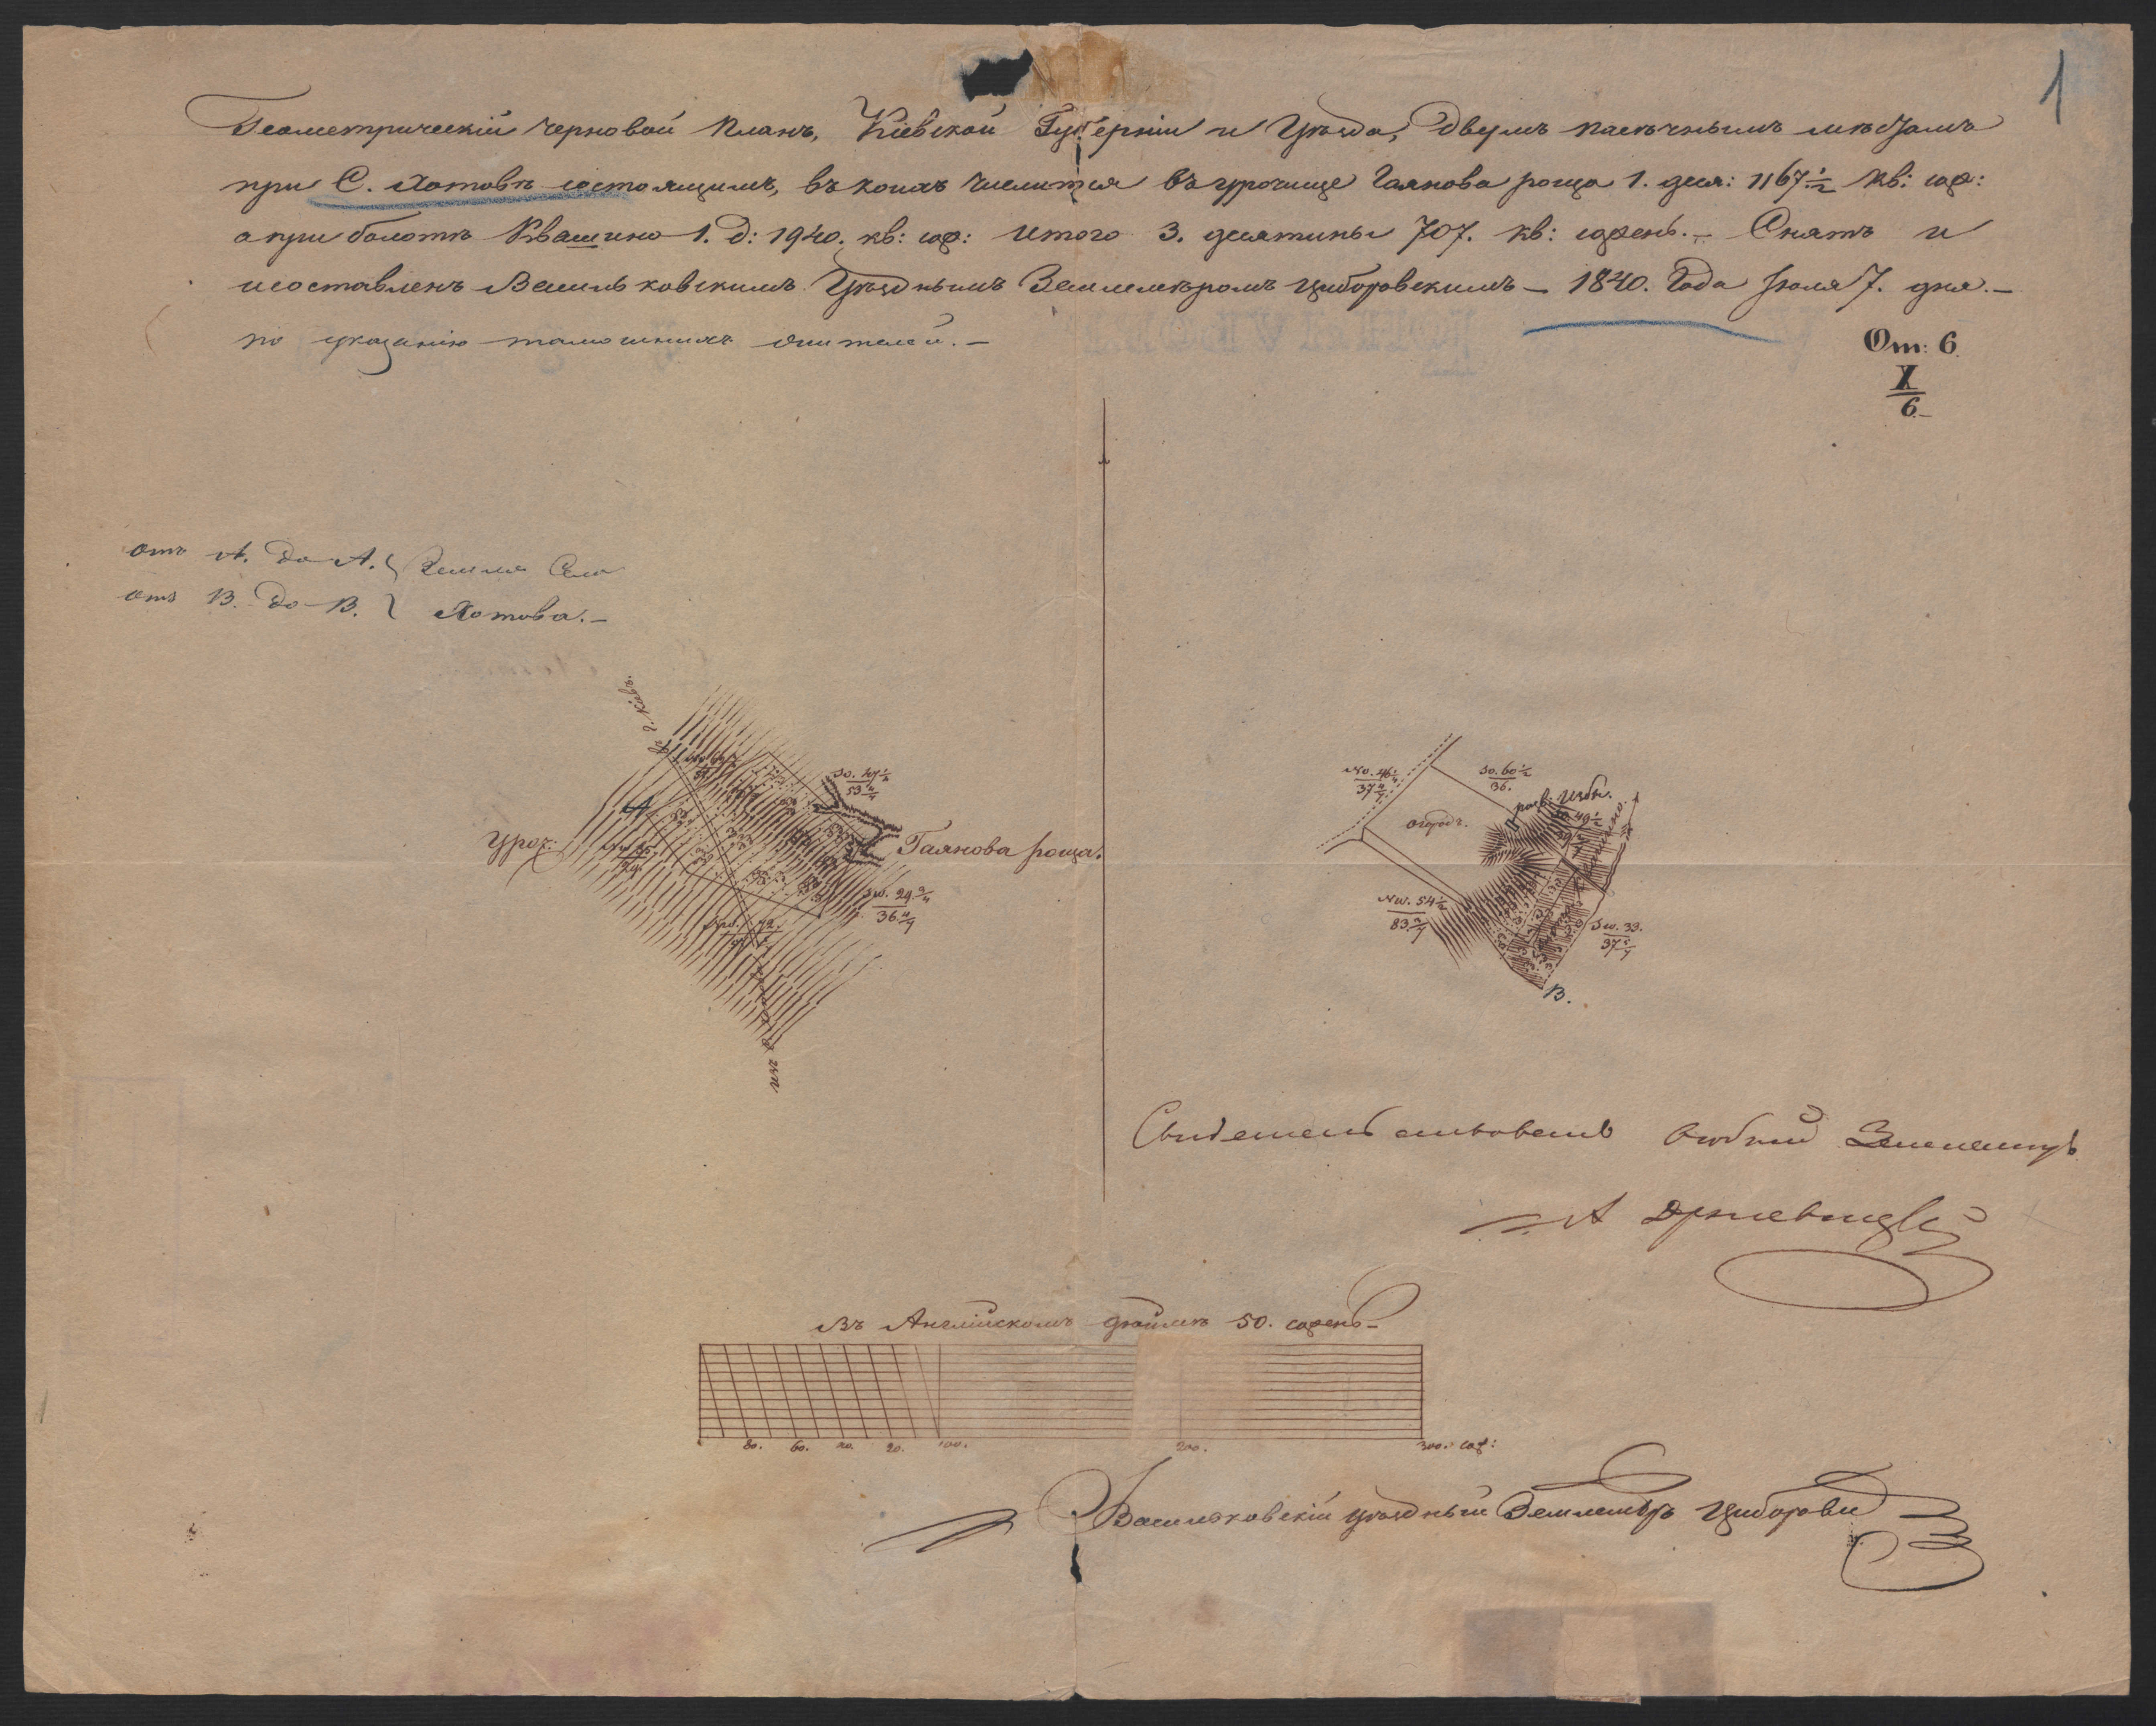 1
Геометрическій черновой Планъ, Кіевской Губерніи и Уѣзда, двумъ пасѣчнымъ мѣстамъ
при С. Хотовѣ состоящимъ, въ коихъ числится въ урочище Галнова роща 1. деся: 1167 1/2 кв: саж:
а при болотѣ Квашино 1. д: 1940. кв: саж: Итого 3. десятины 707. кв: сажень.– Снятъ и
и составленъ Васильковскимъ Уѣзднымъ Землемѣромъ Циборовскимъ – 1840. Года Іюля 7. дня.–
по указанію тамошнихъ жителей.–
От: 6.
X
6.
отъ А. до А. Земля Села
отъ В. до В. Хотова.–
въ г. Кіевъ.
А
SO. 47 1/2
Уроч: Галнова роща.
SW. 24 3/4
36 4/7
изъ
NO. 46 1/4
SO. 60 1/2
36.
огородъ.
NW. 54 1/2
SW. 33.
В.
Свидетельствовалъ Землемеръ
А
Въ Англійскомъ дюймѣ 50. сажень–
80. 60. 40. 20. 100. 200. 300. саж:
Васильковскій уѣздный Землемѣръ Циборовс